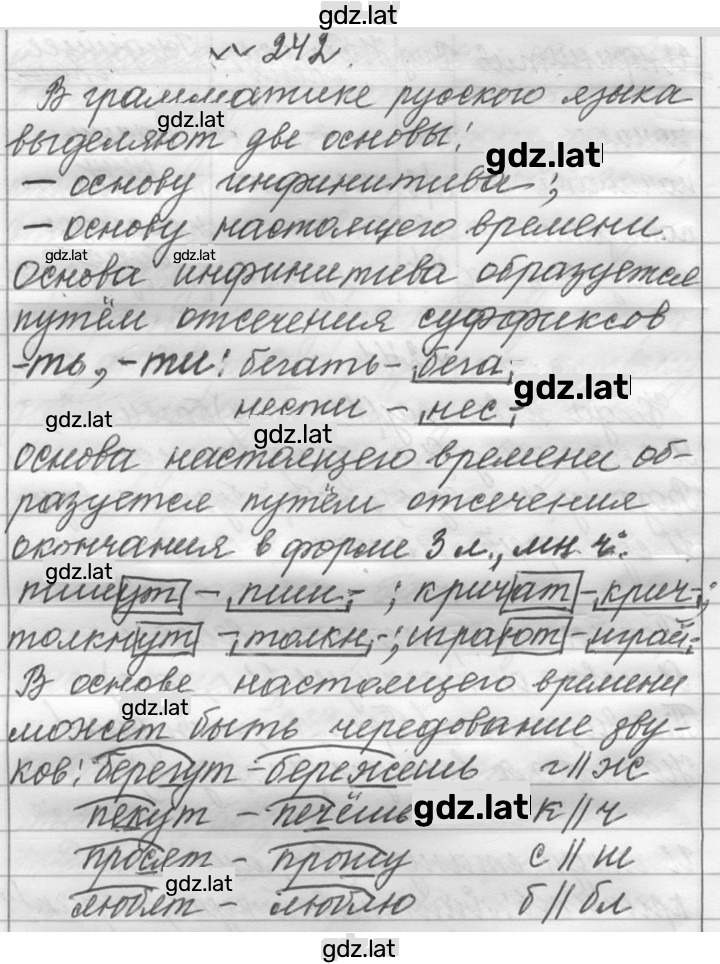 gdz.lat
242
В грамматике русского языка
gdz.lat
выделяют две основы:
gdz.lat
– основу инфинитива;
– основу настоящего времени
gdz.lat gdz.lat
основа инфинитива образуется
путём отсечения суффиксов
-ть, -ти: бегать – бега-
gdz.lat
нести – нес-
gdz.lat gdz.lat
основа настоящего времени об-
разуется путём отсечения
окончания в форме 3 л., мн. ч.:
gdz.lat
пишут – пиш- ; кричат – крич-;
толкнут – толкн-; играют – играй-
В основе настоящего времени
gdz.lat
может быть чередование зву-
ков: берегут – бережешь г//ж
пекут – печёшь к//ч
gdz.lat
просят – прошу с//ш
gdz.lat
любят – люблю б//бл
gdz.lat